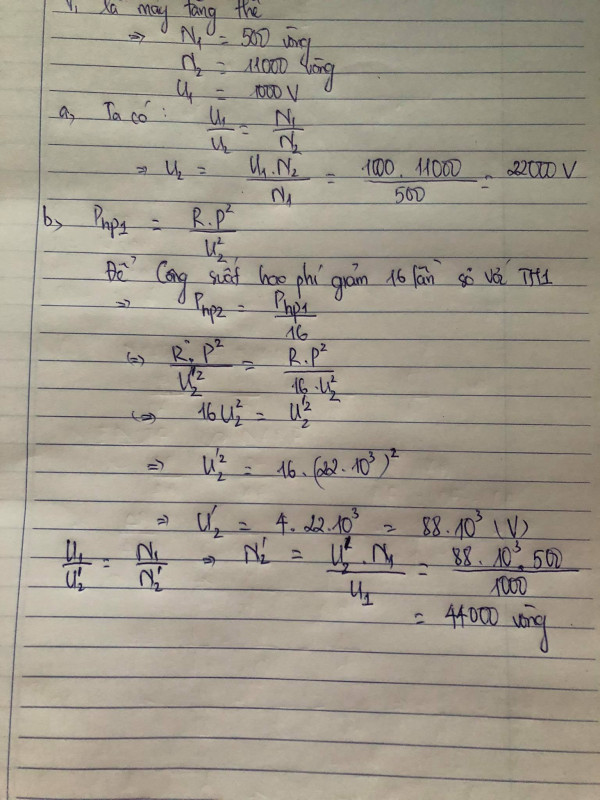 Vì là máy tăng thế
⇒ N₁ = 500 vòng
N₂ = 11000 vòng
U₁ = 1000 V
a, Ta có: U₁/U₂ = N₁/N₂
⇒ U₂ = U₁.N₂/N₁ = 1000.11000/500 = 22000 V
b, Php1 = R.P²/U₂²
Để Công suất hao phí giảm 16 lần so với TH1
⇒ Php2 = Php1/16
⇔ R.P²/U₂'² = R.P²/16.U₂²
⇔ 16U₂² = U₂'²
⇒ U₂'² = 16.(22.10³)²
⇒ U₂' = 4.22.10³ = 88.10³ (V)
U₁/U₂' = N₁/N₂' ⇒ N₂' = U₂'.N₁/U₁ = 88.10³.500/1000
= 44000 vòng